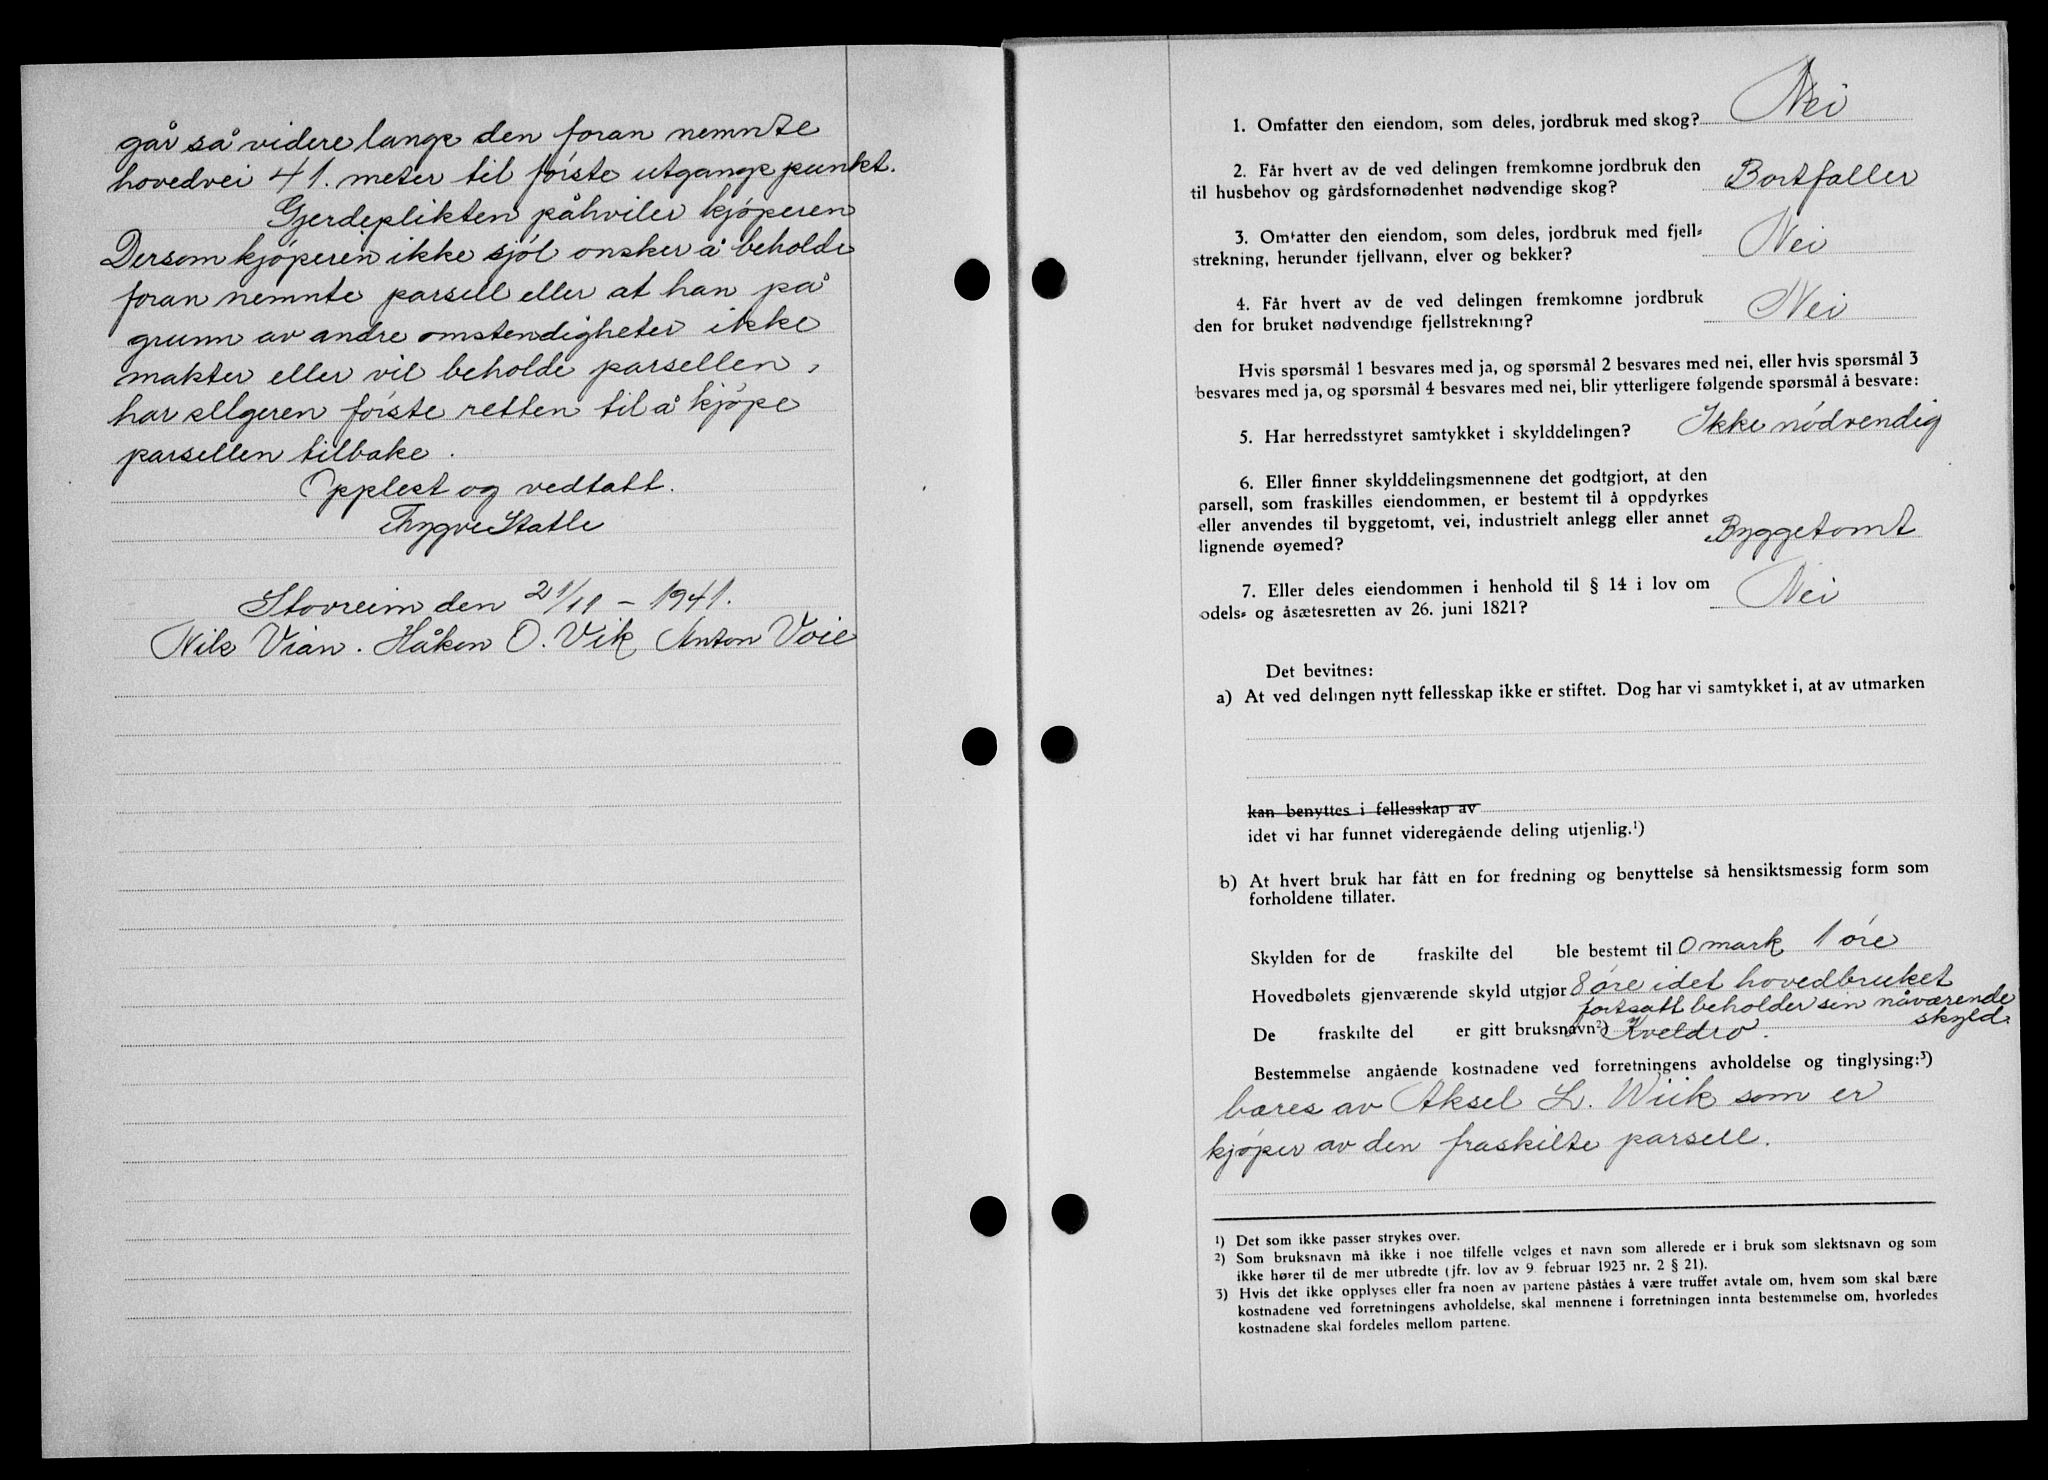 går så videre langs den foran nemnte
hovedvei 41. meter til første utgangspunkt.
Gjerdeplikten påhviler kjøperen
Dersom kjøperen ikke sjøl ønsker å beholde
foran nemnte parsell eller at han på
grunn av andre omstendigheter ikke
makter eller vil beholde parsellen,
har selgeren første retten til å kjøpe
parsellen tilbake.
Opplest og vedtatt.
Trygve Statle
Stovreim den 21/11 - 1941.
Nils Vian. Håkon O. Vik Anton Voie
Nei
1. Omfatter den eiendom, som deles, jordbruk med skog?
2. Får hvert av de ved delingen fremkomne jordbruk den
til husbehov og gårdsfornødenhet nødvendige skog? Bortfaller
3. Omfatter den eiendom, som deles, jordbruk med fjell-
strekning, herunder fjellvann, elver og bekker? Nei
4. Får hvert av de ved delingen fremkomne jordbruk
den for bruket nødvendige fjellstrekning? Nei
Hvis spørsmål 1 besvares med ja, og spørsmål 2 besvares med nei, eller hvis spørsmål 3
besvares med ja, og spørsmål 4 besvares med nei, blir ytterligere følgende spørsmål å besvare:
5. Har herredsstyret samtykket i skylddelingen? Ikke nødvendig
6. Eller finner skylddelingsmennene det godtgjort, at den
parsell, som fraskilles eiendommen, er bestemt til å oppdyrkes
eller anvendes til byggetomt, vei, industrielt anlegg eller annet
lignende øyemed? Byggetomt
7. Eller deles eiendommen i henhold til § 14 i lov om
odels- og åsætesretten av 26. juni 1821? Nei
Det bevitnes:
a) At ved delingen nytt fellesskap ikke er stiftet. Dog har vi samtykket i, at av utmarken
kan benyttes i fellesskap av
idet vi har funnet videregående deling utjenlig.¹)
b) At hvert bruk har fått en for fredning og benyttelse så hensiktsmessig form som
forholdene tillater.
Skylden for de fraskilte del ble bestemt til 0 mark 1 øre
Hovedbølets gjenværende skyld utgjør 8 øre idet hovedbruket
fortsatt beholder sin nåværende
skyld.
De fraskilte del er gitt bruksnavn²) Kveldro.
Bestemmelse angående kostnadene ved forretningens avholdelse og tinglysing:³)
bæres av Aksel L. Wiik som er
kjøper av den fraskilte parsell.
¹) Det som ikke passer strykes over.
²) Som bruksnavn må ikke i noe tilfelle velges et navn som allerede er i bruk som slektsnavn og som
ikke hører til de mer utbredte (jfr. lov av 9. februar 1923 nr. 2 § 21).
3) Hvis det ikke opplyses eller fra noen av partene påståes å være truffet avtale om, hvem som skal bære
kostnadene ved forretningens avholdelse, skal mennene i forretningen innta bestemmelse om, hvorledes
kostnadene skal fordeles mellom partene.